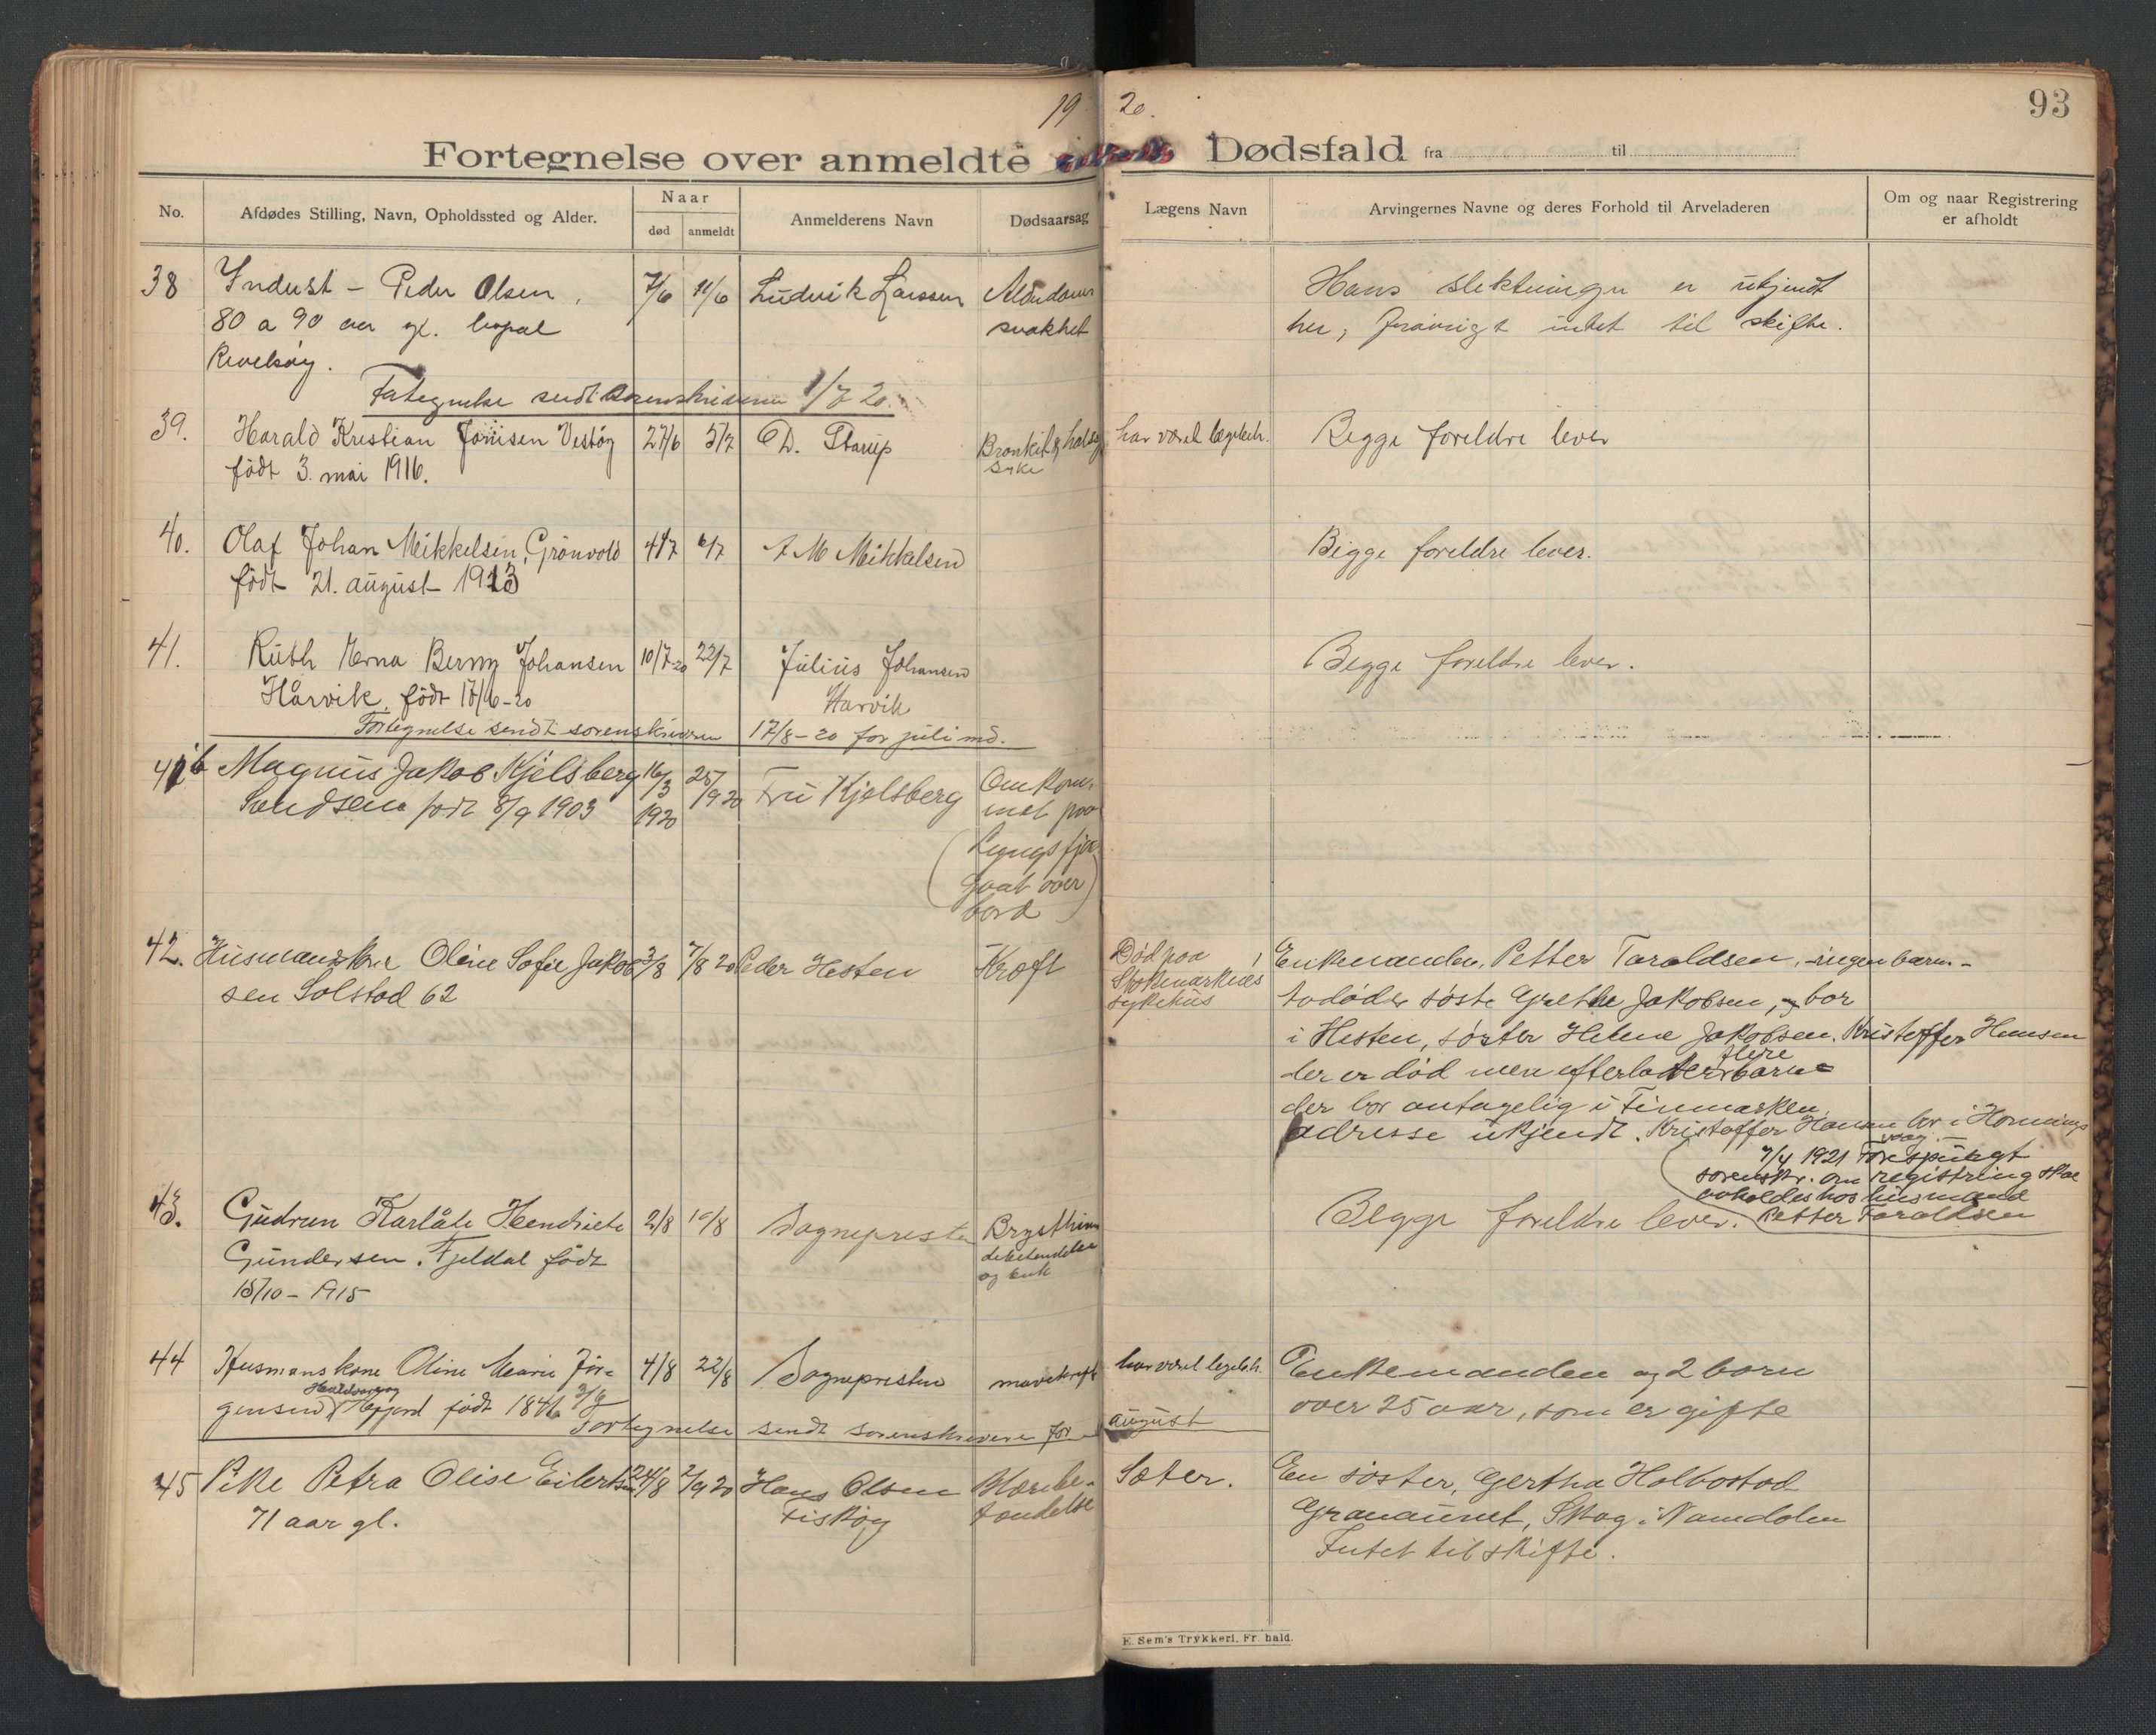 19 20.
93
Fortegnelse over anmeldte Dødsfald fra til
No.
Afdødes Stilling, Navn, Opholdssted og Alder.
Naar
død
anmeldt
Anmelderens Navn
Dødsaarsag
Lægens Navn
Arvingernes Navne og deres Forhold til Arveladeren
Om og naar Registrering
er afholdt
38 Indust - Peder Olsen, 7/6 11/6 Ludvik Larssen Alderdoms Hans slektninger er ukjendt
80 a 90 aar gl. svakhet her, forøvrigt intet til skifte.
Fortegnelse sendt sorenskriveren 1/7 20.
39. Harald Kristian Jonsen Vestøy 27/6 5/7 Bronkit & hals har været lægebeh. Begge foreldre lever
født 3. mai 1916. syke
40. Olaf Johan Mikkelsen, Grønvold 4/7 6/7 A M Mikkelsen Begge foreldre lever.
født 21. august 1913
41. Ruth Herna Berny Johansen 10/7-20 22/7 Julius Johansen Begge foreldre lever.
Hårvik, født 17/6-20 Harvik
Fortegnelse sendt sorenskriveren 17/8-20 for juli md.
41 b Magnus Jakob Kjelsberg 16/3 25/9 20 Fru Kjelsberg Omkom-
Svendsen født 8/9 1903 1920 met paa
Lyngsfjor
(gaat over
bord)
42. Husmandskone Oline Sofie Jakob 3/8 7/8 20 Peder Hesten Kræft Død paa Enkemanden, Petter Taraldsen, -ingen barn-
sen Solstad 62 Stokmarknes avdødes søster Grethe Jakobsen, bor
sykehus i Hesten, søster Helene Jakobsen. Kristoffer Hansen
der er død men efterlader flere barn
der bor antagelig i Finmarken,
adresse ukjendt. Kristoffer Hansen bor i Honnings
vaag.
(7/4 1921 Forespurgt
sorenskr. om registrering skal
avholdes hos husmand
Petter Taraldsen
43. Gudrun Karlåte Hendriete 2/8 10/8 Sognepresten Brysthin Begge foreldre lever.
Gundersen, Fjeldal født debetendelse
15/10-1915
44 Husmanskone Oline Marie Jør- 4/8 22/8 Sognepresten mavekræft har været legebeh. Enkemanden og 2 barn
gensen født 1846 3/6 over 25 aar, som er gifte
Fortegnelse sendt sorenskriveren for august
45 Pike Petra Olise Eilertsen 24/8 2/9 20 Hans Olsen Blærebe- Sæter. En søster, Gertha Holbostad
71 aar gl. Fiskøy tændelse Granaunet, Skog i Namdalen
Intet til skifte.
E. Sem's Trykkeri, Fr. hald.